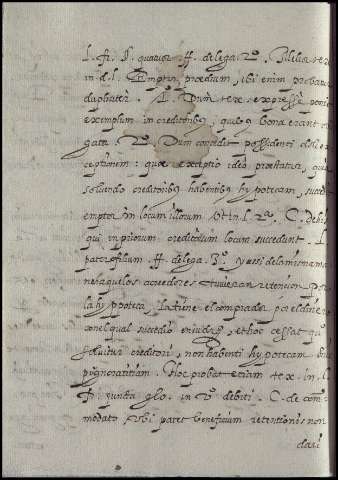 L. fi. §. quatuor ff. de lega. 2º. Ille
in d. l. Emptor, prædium, ibi enim probatur
dupliciter. 1º. Dum tex. expressè ponit
exemplum in creditoribus, quibus bona erant
gata. 2º. Dum concedit possidenti
ceptionem: quæ exceptio ideo præstatur, quia
soluendo creditoribus habentibus hypotecam, succedit
emptor in locum illorum Ut in l. C. de his
qui in priorum creditorum locum succedunt. L.
paterfilium. ff. de lega. 3º. y assi de la misma ma
nera que los acreedores tuuieran retencion por
la hypoteca, la tiene el comprador por el dinero
con el qual succediò et hoc cessat
soluitur creditori, non habenti hypotecam
pignoratitiam. Hoc probat etiam tex. in l.
juncta glo. in debiti. C. de com
modato Ubi patet beneficium retentionis non
dari